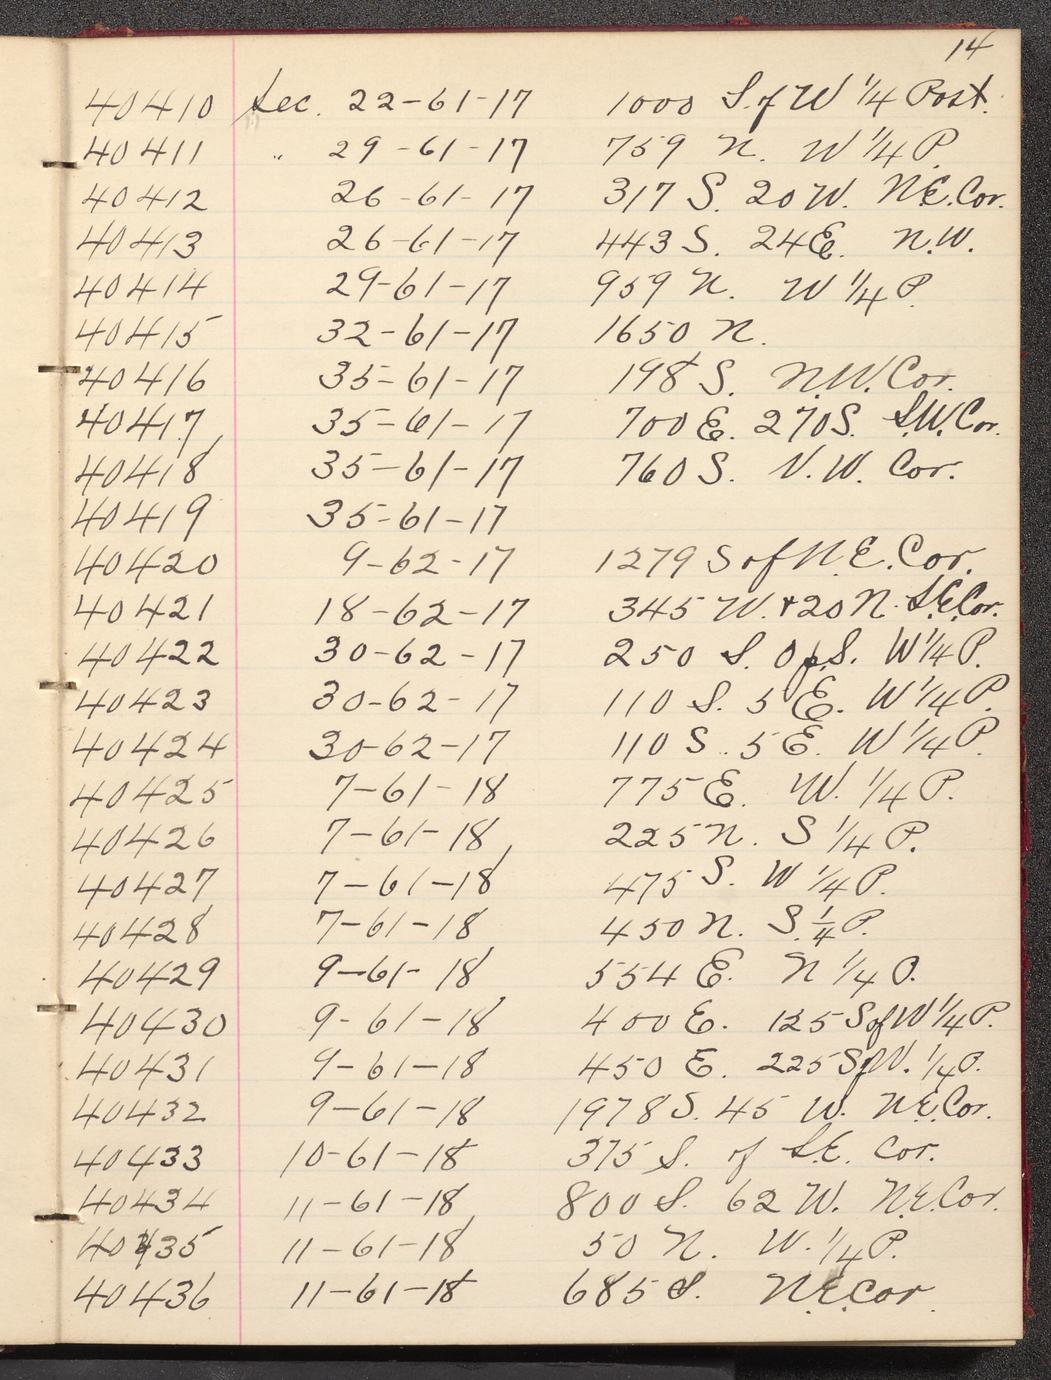 14
40410 Sec. 22-61-17 1000 S. of W 1/4 Post.
40411 " 29-61-17 759 N. W 1/4 P.
40412 26-61-17 317 S. 20 W. N.E. Cor.
40413 26-61-17 443 S. 24 E. N.W.
40414 29-61-17 959 N. W 1/4 P.
40415 32-61-17 1650 N.
40416 35-61-17 198 S. N.W. Cor.
40417 35-61-17 700 E. 270 S. S.W. Cor.
40418 35-61-17 760 S. N.W. Cor.
40419 35-61-17
40420 9-62-17 1279 S of N.E. Cor.
40421 18-62-17 345 W. + 20 N. S.E. Cor.
40422 30-62-17 250 S. S. W 1/4 P.
40423 30-62-17 110 S. 5 E. W 1/4 P.
40424 30-62-17 110 S. 5 E. W 1/4 P.
40425 7-61-18 775 E. W. 1/4 P.
40426 7-61-18 225 N. S 1/4 P.
40427 7-61-18 475 S. W 1/4 P.
40428 7-61-18 450 N. S. 1/4 P.
40429 9-61-18 554 E. N 1/4 P.
40430 9-61-18 400 E. 125 S of W 1/4 P.
40431 9-61-18 450 E. 225 S of W. 1/4 P.
40432 9-61-18 1978 S. 45 W. N.E. Cor.
40433 10-61-18 375 S. of S.E. Cor.
40434 11-61-18 800 S. 62 W. N.E. Cor.
40435 11-61-18 50 N. W. 1/4 P.
40436 11-61-18 685 S. N.E. Cor.